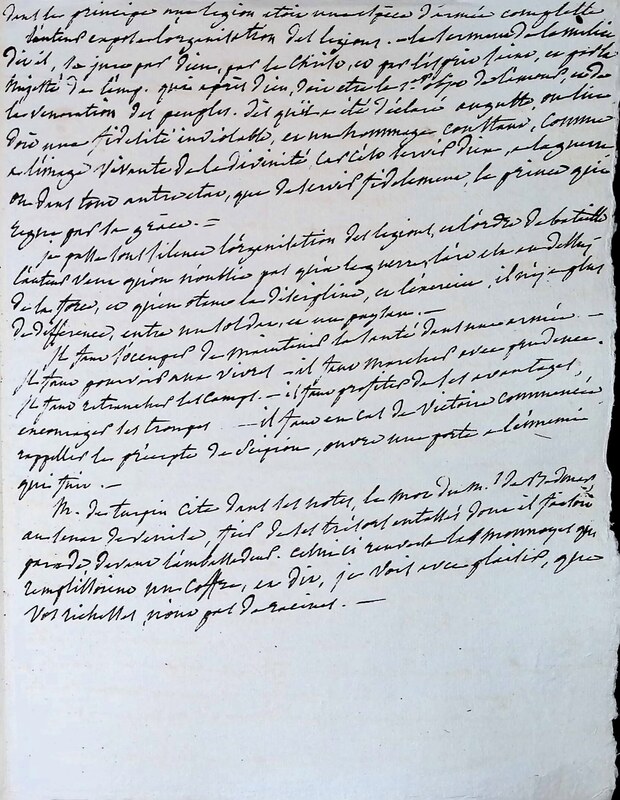 dans le principe une legion etoit une espece d'armée complette
l'auteur expose l'organisation des legions. — le serment de la milice
dit il, se jure par dieu, par le christ, et par l'esprit saint, et par la
majesté de l'emp. que après dieu, doit etre le 1er objet de l'amour et de
la veneration des peuples. dès qu'il a été déclaré auguste, on lui
doit une fidelité inviolable, et un hommage constant, comme
a l'image vivante de la divinité, car c'est servir dieu, a la guerre
ou dans tout autre etat, que de servir fidelement, le prince qui
regne par sa grace. —
je passe sous silence l'organisation des legions, et l'ordre de bataille
l'auteur veut qu'on n'oublie pas qu'a la guerre l'art est au dessus
de la force, et qu'en otant la discipline, et l'exercice, il n'y a plus
de difference, entre un soldat, et un paysan. —
il faut s'occuper de maintenir la santé dans une armée. —
il faut pourvoir aux vivres — il faut marcher avec prudence.
il faut retrancher les camps. — il faut profiter de ses avantages,
encourager les troupes — il faut en cas de victoire commencée
rappeller le précepte de Scipion, ouvre une porte a l'ennemi
qui fuit. —
M. de turpin cite dans ses notes, le mot du m. de
au senat de venise, fier de ses tresors entassés dont il faisoit
parade devant l'ambassadeur. celui ci renversa les monnoyes qui
remplissoient un coffre, et dit, je vois avec plaisir, que
vos richesses, n'ont pas de racines. —